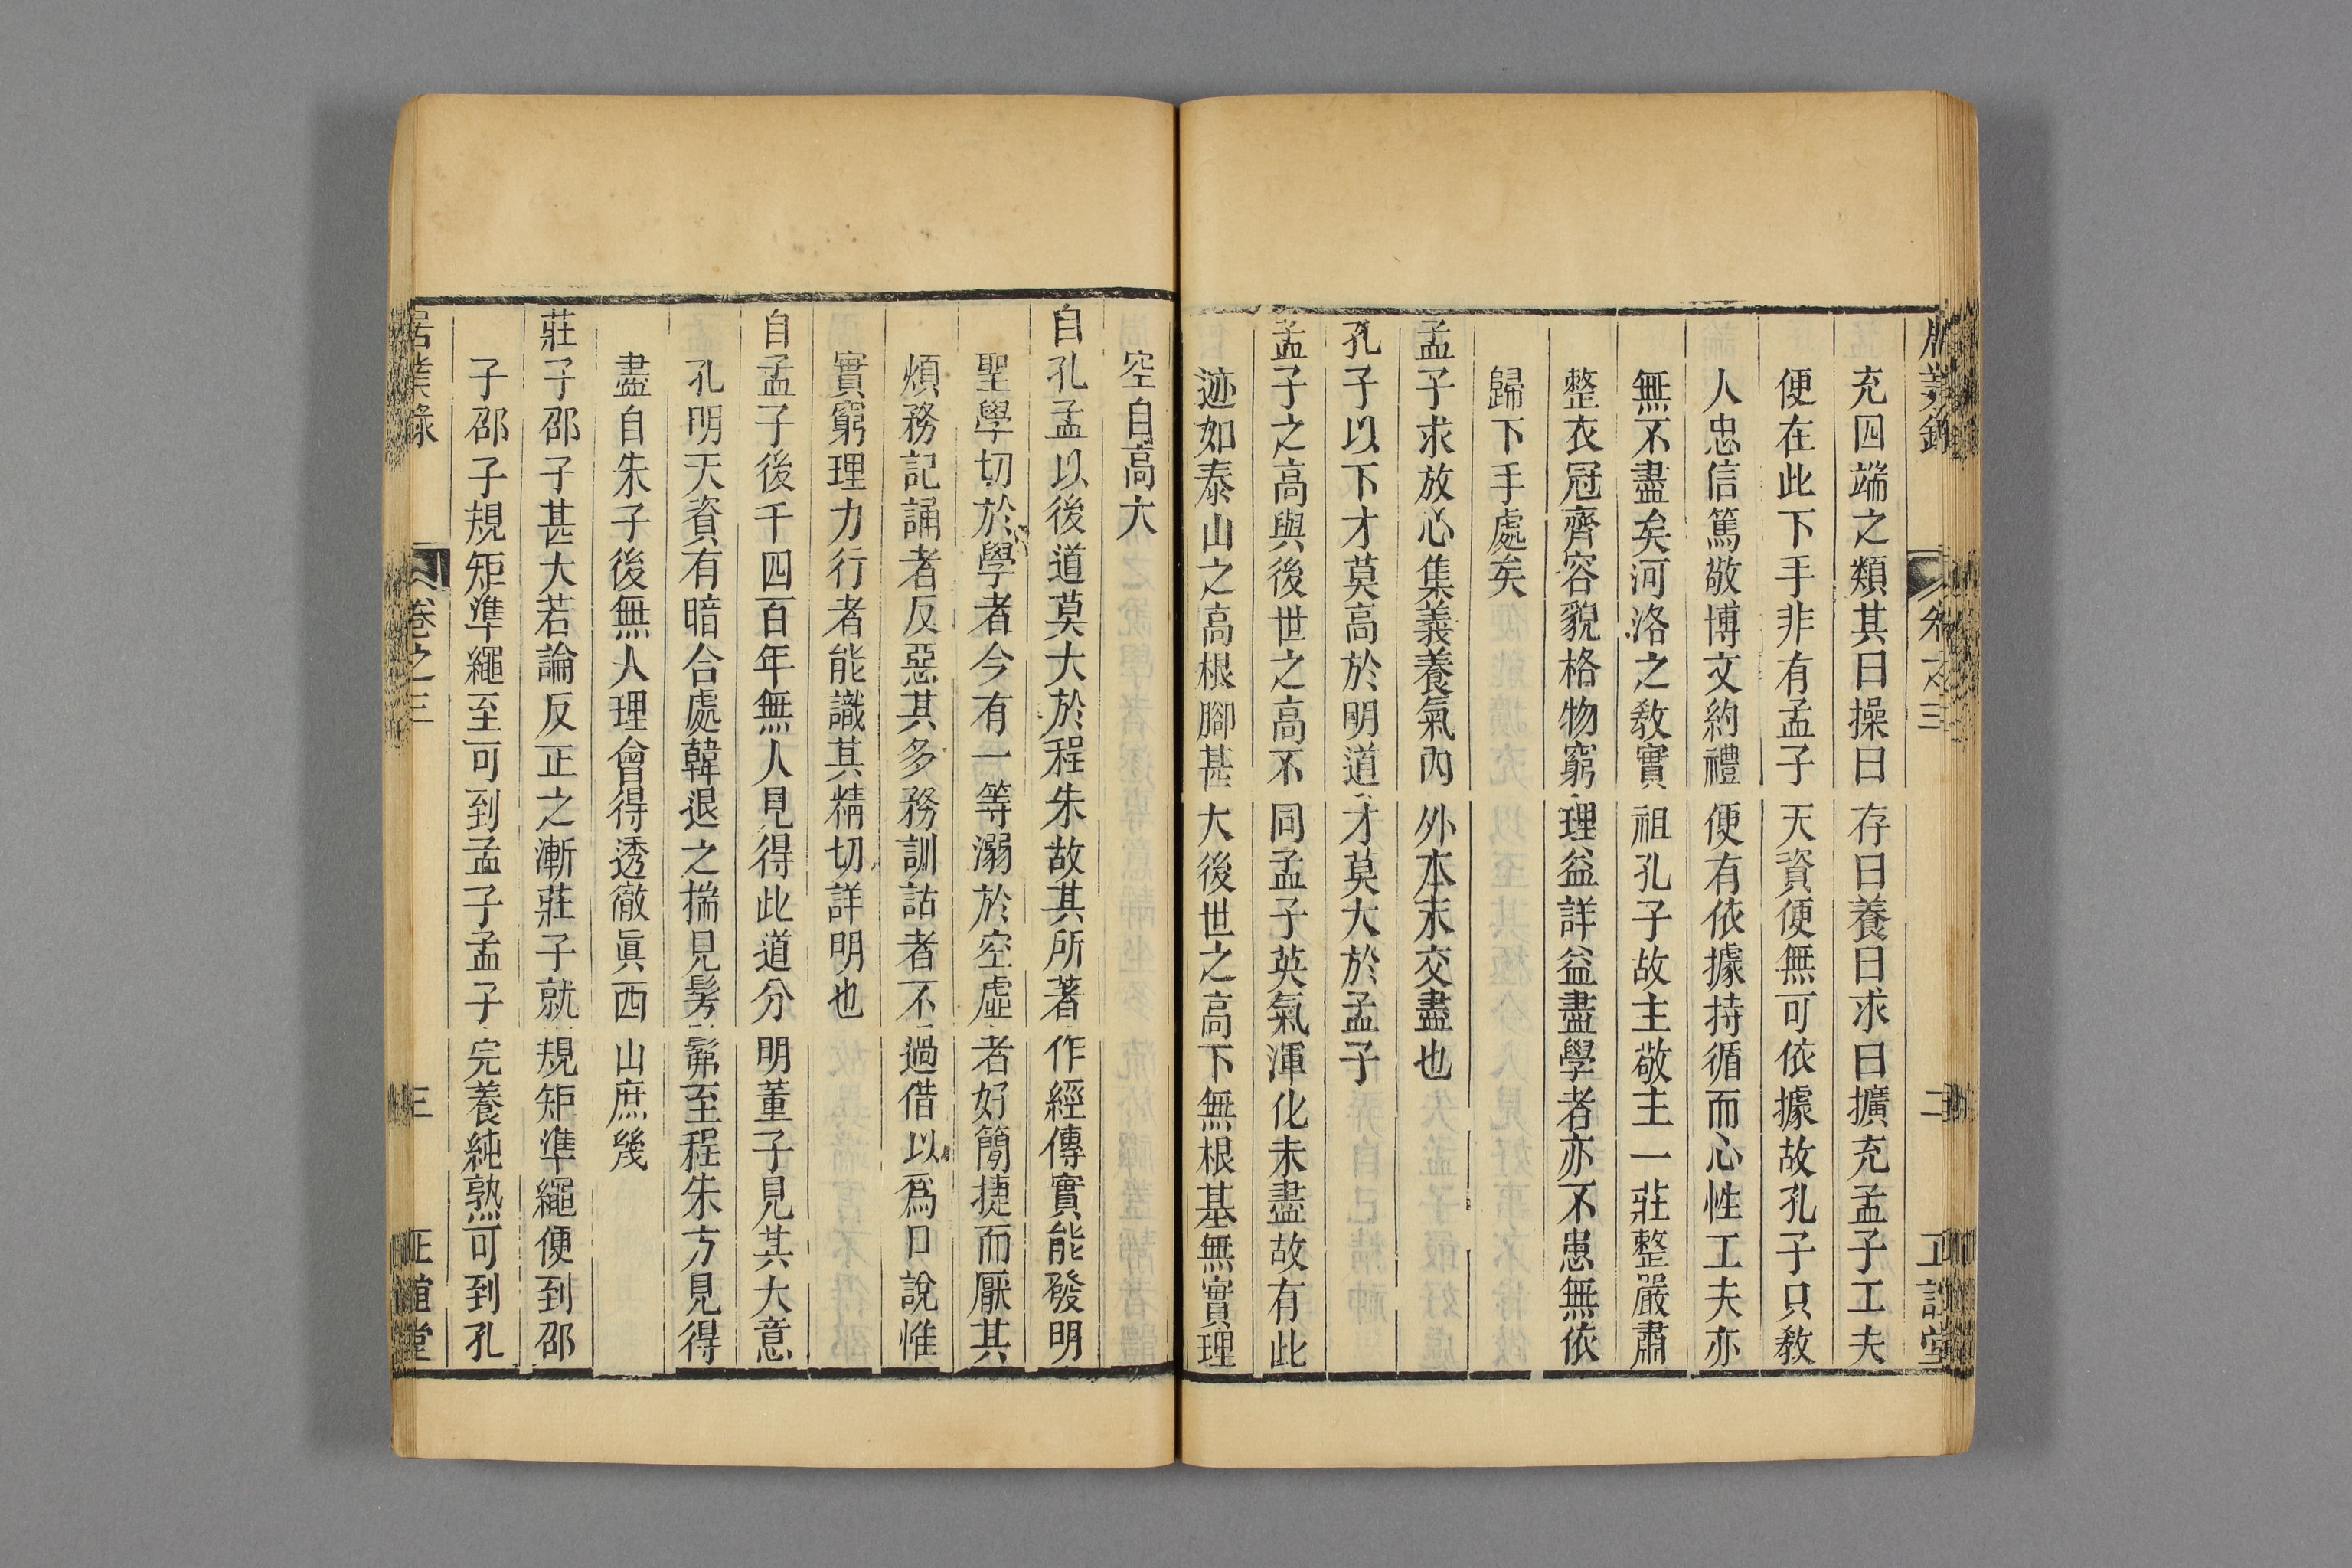 居業錄 卷之三 二 正誼堂
充四端之類其曰操曰存曰養曰求曰擴充孟子工夫
便在此下手非有孟子天資便無可依據故孔子只敎
人忠信篤敬博文約禮便有依據持循而心性工夫亦
無不盡矣河洛之敎實祖孔子故主敬主一莊整嚴肅
整衣冠齊容貌格物窮理益詳益盡學者亦不患無依
歸下手處矣
孟子求放心集義養氣內外本末交盡也
孔子以下才莫高於明道才莫大於孟子
孟子之高與後世之高不同孟子英氣渾化未盡故有此
迹如泰山之高根腳甚大後世之高下無根基無實理
空自高大
自孔孟以後道莫大於程朱故其所著作經傳實能發明
聖學切於學者今有一等溺於空虛者好簡捷而厭其
煩務記誦者反惡其多務訓詁者不過借以爲口說惟
實窮理力行者能識其精切詳明也
自孟子後千四百年無人見得此道分明董子見其大意
孔明天資有暗合處韓退之揣見髣髴至程朱方見得
盡自朱子後無人理會得透徹眞西山庶幾
莊子邵子甚大若論反正之漸莊子就規矩準繩便到邵
子邵子規矩準繩至可到孟子孟子完養純熟可到孔
居業錄 卷之三 三 正誼堂